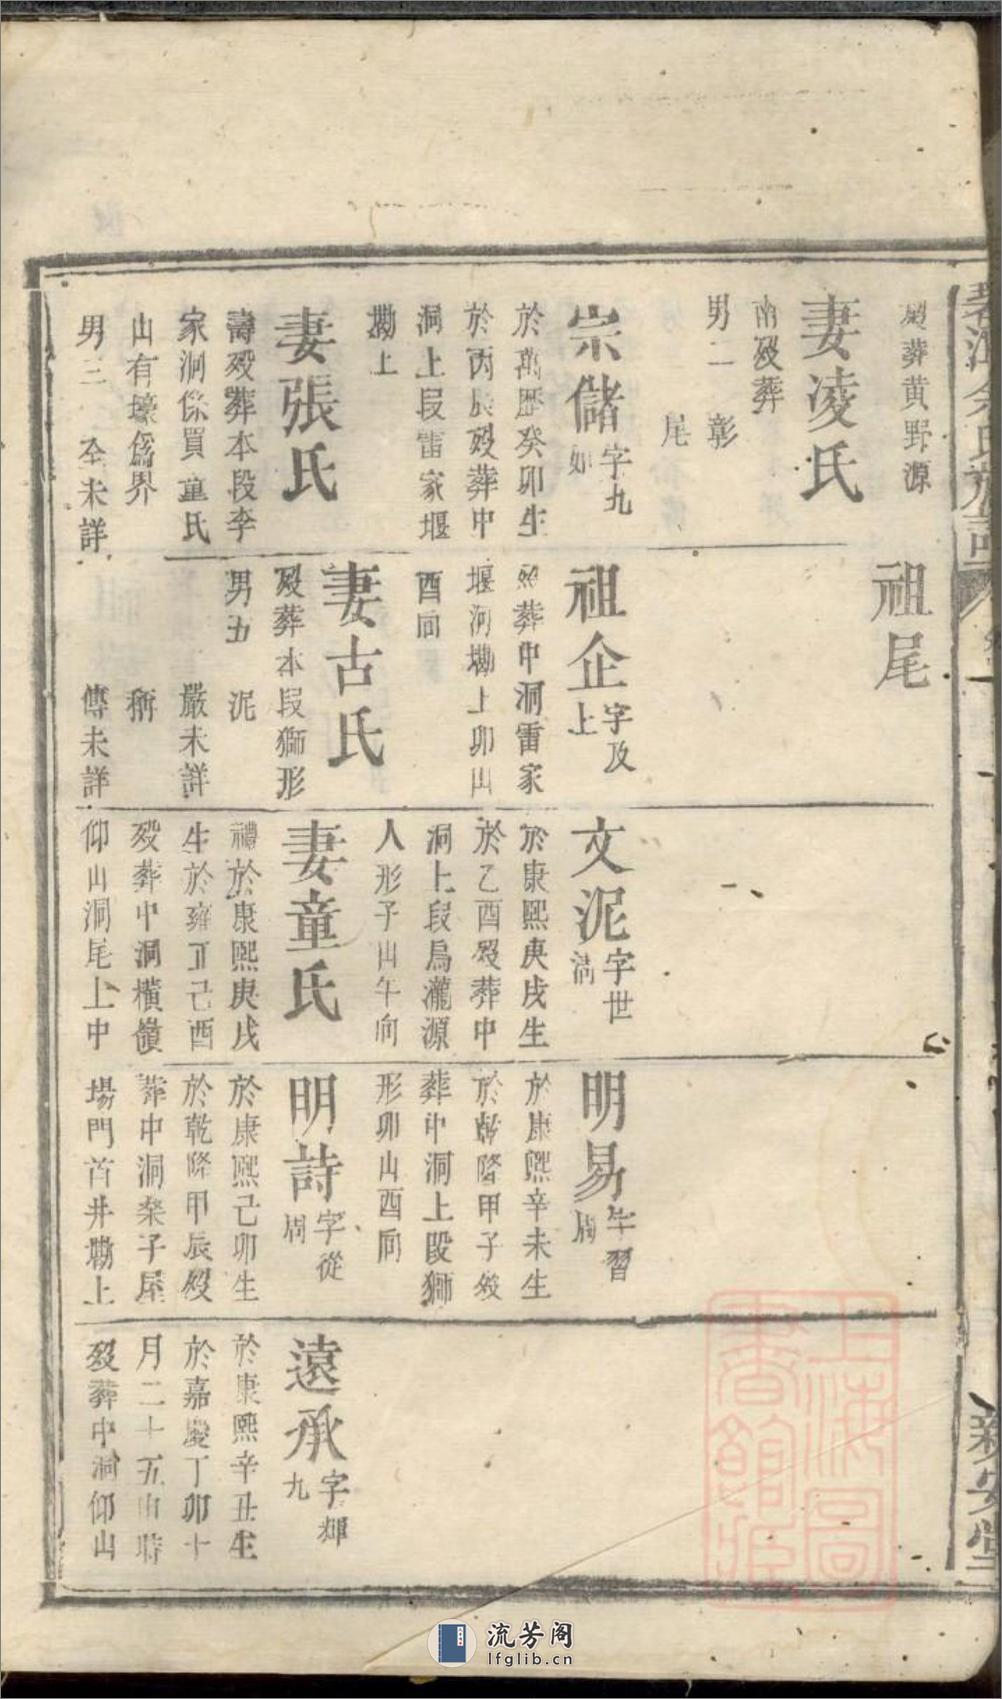 葬黄野源
妻凌氏
南歿葬
男二 彰
尾
宗儲字九
如
於萬歷癸卯生
於丙辰歿葬中
洞上段雷家堰
墈上
妻張氏
壽歿葬本段李
家洞係買童氏
山有壕爲界
男三 全未詳
祖尾
祖企字及
上
葬中洞雷家
堰河墈上卯山
酉向
妻古氏
歿葬本段獅形
男五 泥
嚴未詳
稱
傳未詳
文泥字世
清
於康熙庚戌生
於乙酉歿葬中
洞上段烏瀧源
人形子山午向
妻童氏
禮於康熙庚戌
生於雍正己酉
歿葬中洞橫嶺
仰山洞尾上中
明易字習
周
於康熙辛未生
於乾隆甲子歿
葬中洞上段獅
形卯山酉向
明詩字從
周
於康熙己卯生
於乾隆甲辰歿
葬中洞桑子屋
場門首井墈上
遠承字輝
九
於康熙辛丑生
於嘉慶丁卯十
月二十五申時
歿葬中洞仰山
余氏族譜
新安堂
上海圖書館藏
流芳阁
lfglib.cn